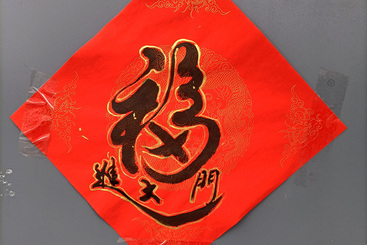 福
進大門